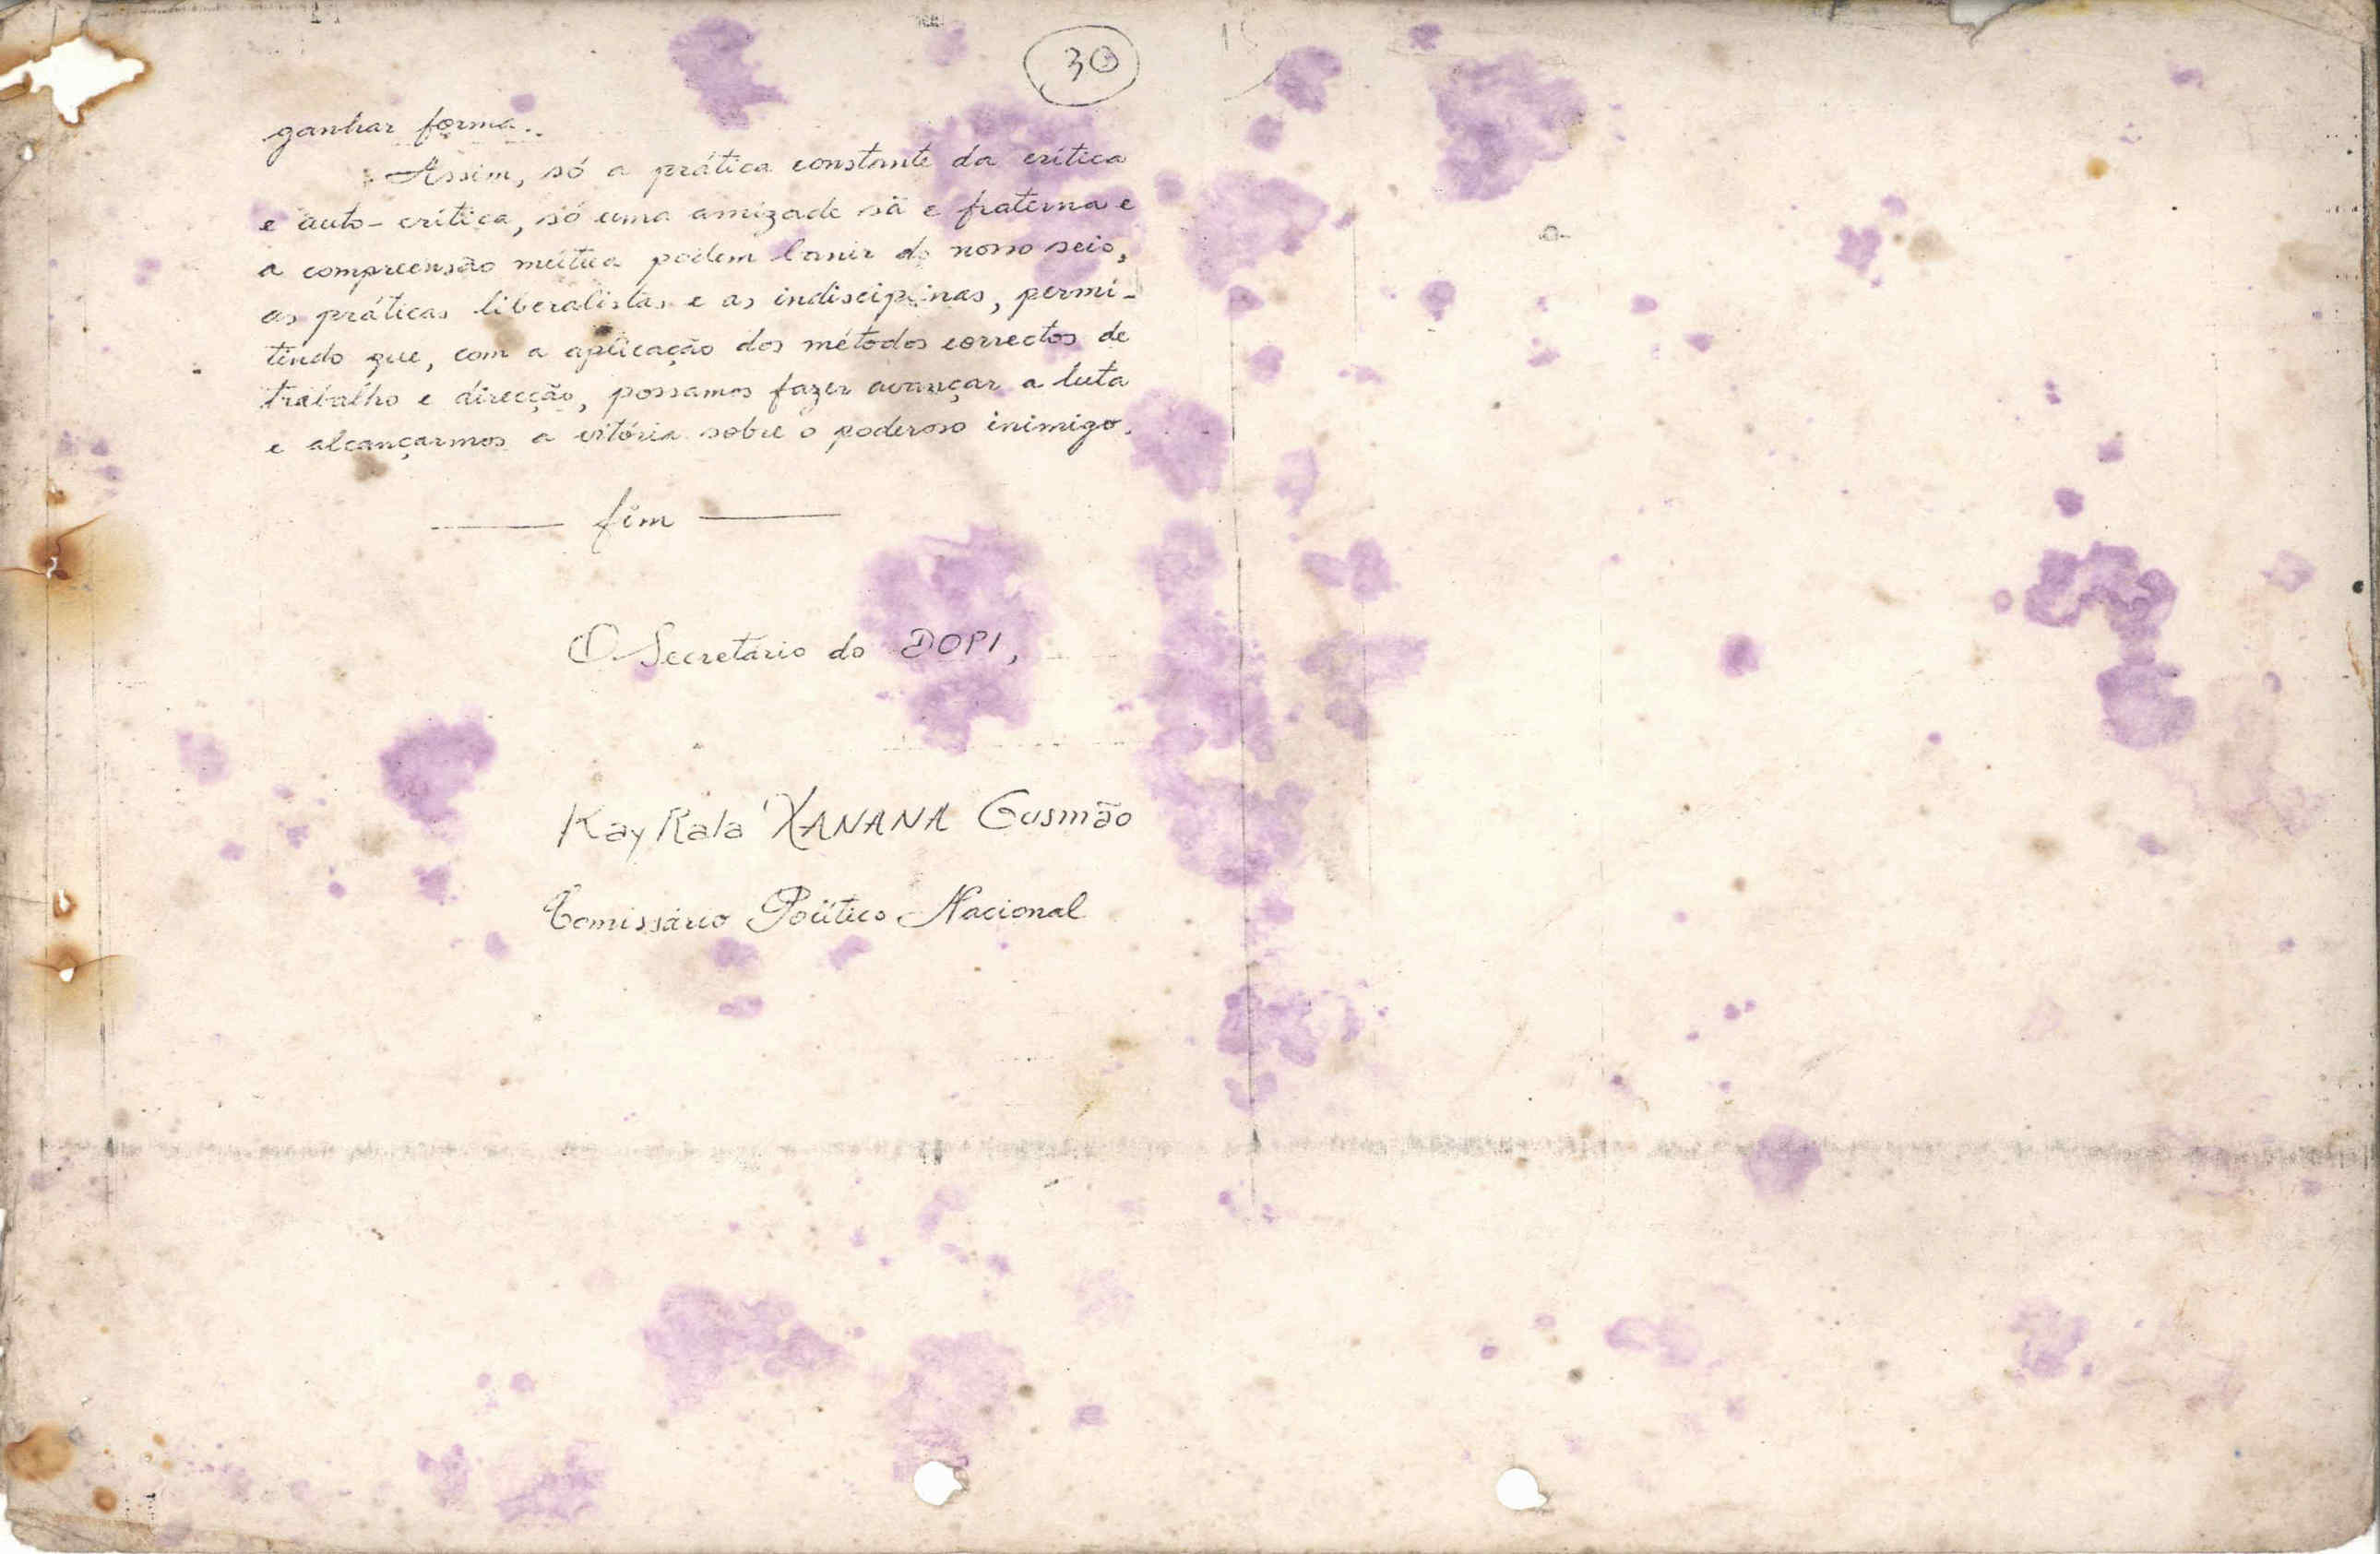 30
ganhar forma..
Assim, só a prática constante da crítica
e auto-crítica, só uma amizade sã e fraterna e
a compreensão mútua podem banir do nosso seio,
as práticas liberalistas e as indisciplinas, permi-
tindo que, com a aplicação dos métodos correctos de
trabalho e direcção, possamos fazer avançar a luta
e alcançarmos a vitória sobre o poderoso inimigo.
fim
O Secretário do DOPI,
Kay Rala XANANA Gusmão
Comissário Político Nacional